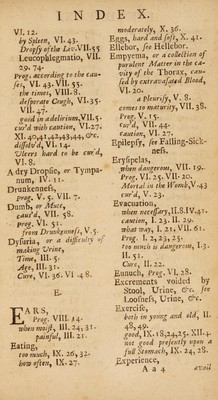 INDEX.
VI. 12.
by Spleen, VI. 43.
Dropsy of the Leo. VII. 55
Leucophlegmatio, VII.
29. 74.
Prog. according to the cau-
ses, VI. 43. VII. 55.
the times, VIII. 8.
desperate Cough, VI. 35.
VII. 47.
good in a delirium, VII. 5.
cur'd with caution, VI. 27.
XI. 40, 41, 42, 43, 44, &c.
dissolv'd, VI. 14.
Ulcers hard to be cur'd,
VI. 8.
A dry Dropsie, or Tympa-
num, IV. 11.
Drunkenness,
prog. V. 5. VII. 7.
Dumb, or Mute,
caus'd, VII. 58.
prog. VI. 51.
from Drunkenness, V. 5.
Dysuria, or a difficulty of
making Urine,
Time, III. 5.
Age, III. 31.
Cure, VI. 36. VI 48.
E.
EARS,
Prog. VIII. 14.
when moist, III. 24, 31.
painful, III. 21.
Eating,
too much, IX. 26, 32.
how often, IX. 27.
moderately, X. 36.
Eggs, hard and soft, X. 41.
Ellebor, see Hellebor.
Empyema, or a collection of
purulent Matter in the ca-
vity of the Thorax, cau-
sed by extravasated Blood,
VI. 20.
a Pleurisy, V. 8.
comes to maturity, VII. 38.
Prog. V. 15.
cur'd, VII. 44.
caution, VI. 27.
Epilepsy, see Falling-Sick-
ness.
Erysipelas,
when dangerous, VII. 19.
Prog. VI. 25. VII. 20.
Mortal in the Womb, V. 43
cur'd, V. 23.
Evacuation,
when necessary, II. 8. IV. 41.
caution, I. 23. II. 29.
what way, I. 21. VII. 61.
Prog. I. 2, 23, 25.
too much is dangerous, I. 3.
II. 51.
Cure, II. 22.
Eunuch, Prog. VI, 28.
Excrements voided by
Stool, Urine, &c. see
Loosness, Urine, &c.
Exercise,
both in young and old, II.
48, 49.
good, IX. 18, 24, 25. XII. 4.
not good presently upon a
full Stomach, IX. 24, 28.
Experience,
A a 4 avail